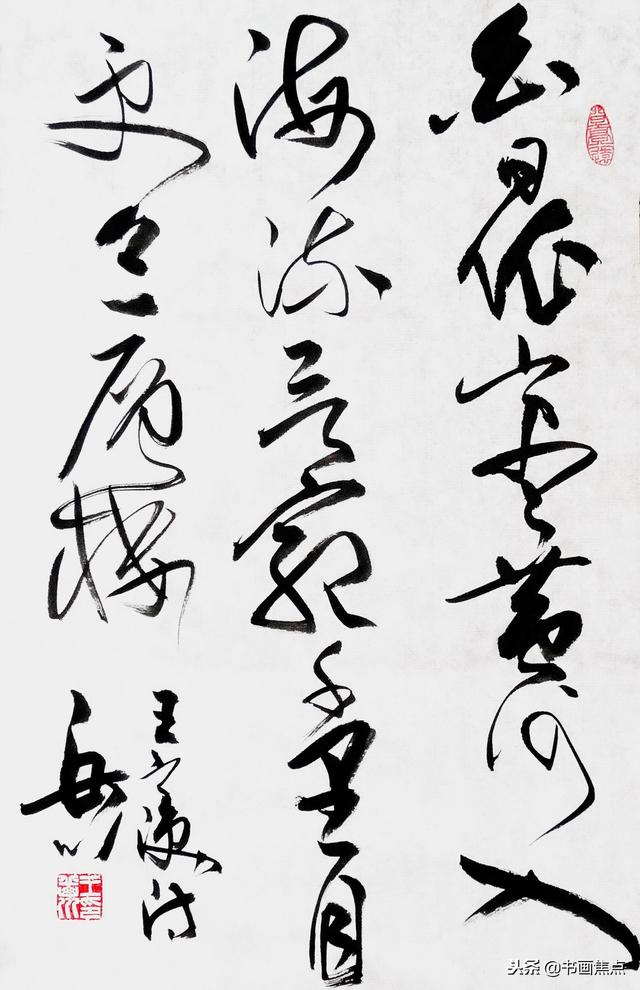 白日依山尽黄河入
海流欲窮千里目
更上一層樓
王之渙诗
头条 @书画焦点